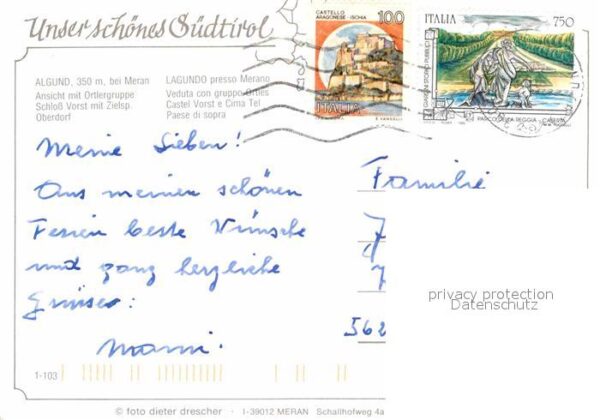 Unser schönes Südtirol
ALGUND, 350 m, bei Meran
Ansicht mit Ortlergruppe
Schloß Vorst mit Zielsp.
Oberdorf
LAGUNDO presso Merano
Veduta con gruppo Ortles
Castel Vorst e Cima Tel
Paese di sopra
CASTELLO
ARAGONESE - ISCHIA
100
ITALIA
ITALIA 750
GIARDINI STORICI PUBBLICI
PARCO DELLA REGGIA - CASERTA
Meine Lieben!
Aus meinen schönen
Ferien beste Wünsche
und ganz herzliche
Grüsse:
Mami.
Familie
562
privacy protection
Datenschutz
1-103
© foto dieter drescher - I-39012 MERAN Schallhofweg 4a